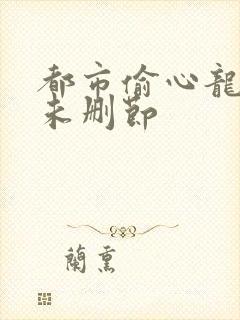 都市偷心龍
未删节
蘭熏